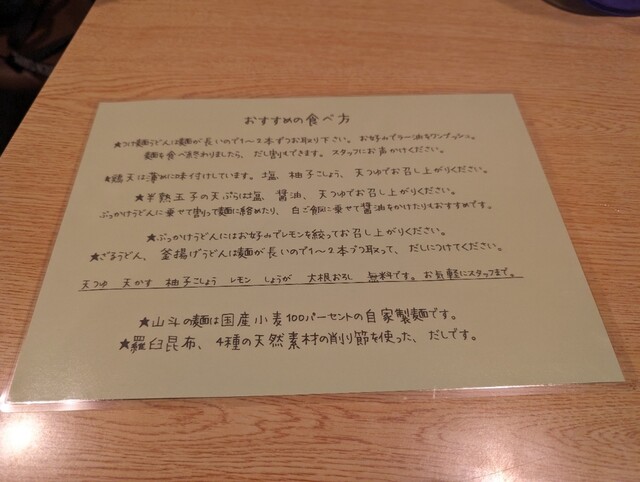 おすすめの食べ方
★つけ麺うどんは麺が長いので1〜2本ずつお取り下さい。お好みでラー油をワンプッシュ。
麺を食べ終わりましたら、だし割りもできます。スタッフにお声かけください。
★鶏天は薄めに味付けしています。塩、柚子こしょう、天つゆでお召し上がりください。
★半熟玉子の天ぷらは塩、醤油、天つゆでお召し上がりください。
ぶっかけうどんに乗せて割って麺に絡めたり、白ご飯に乗せて醤油をかけたりもおすすめです。
★ぶっかけうどんにはお好みでレモンを絞ってお召し上がりください。
★ざるうどん、釜揚げうどんは麺が長いので1〜2本づつ取って、だしにつけてください。
天つゆ 天かす 柚子こしょう レモン しょうが 大根おろし 無料です。お気軽にスタッフまで。
★山斗の麺は国産小麦100パーセントの自家製麺です。
★羅臼昆布、4種の天然素材の削り節を使った、だしです。